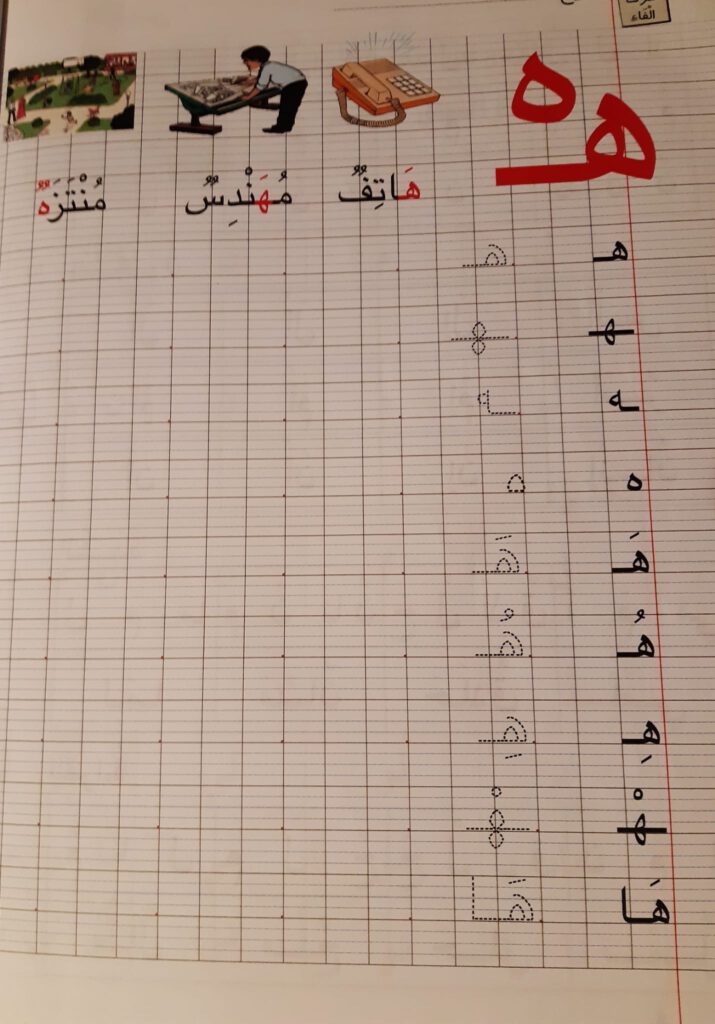 الفاء
ه
هـ
هَاتِفٌ مُهَنْدِسٌ مُنْتَزَهٌ
هـ هـ
ـهـ ـهـ
ـه ـه
ه ه
هَـ هَـ
هُـ هُـ
هِـ هِـ
ـهْـ ـهْـ
هَا هَا